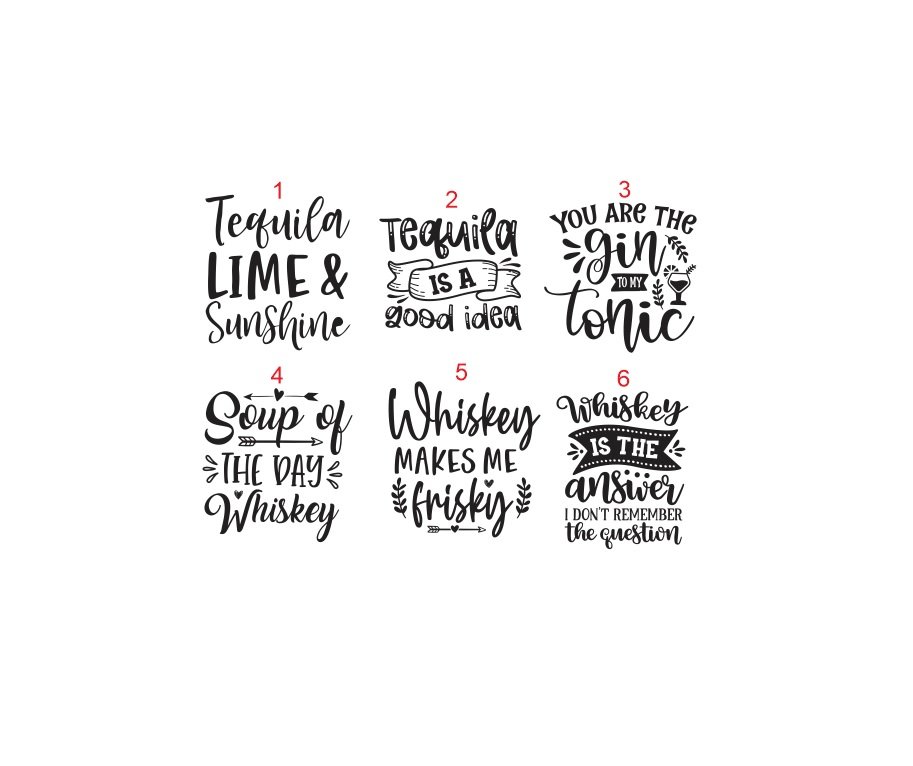 1
Tequila
LIME &
Sunshine
2
Tequila
IS A
good idea
3
YOU ARE THE
gin
TO MY
tonic
4
Soup of
THE DAY
Whiskey
5
Whiskey
MAKES ME
frisky
6
Whiskey
IS THE
answer
I DON'T REMEMBER
the question